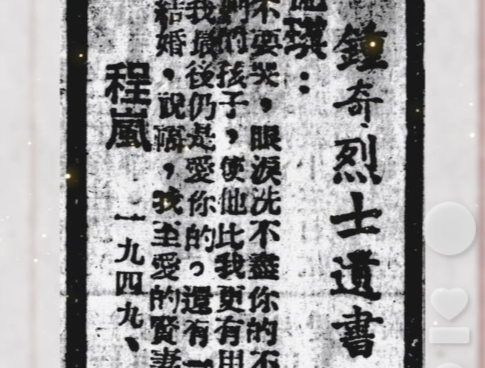 鍾奇烈士遺書
琪：
不要哭，眼淚洗不盡你的不
的孩子，使他比我更有用
我最後仍是愛你的。還有一
結婚，祝福，我至愛的賢妻
程嵐
一九四九、